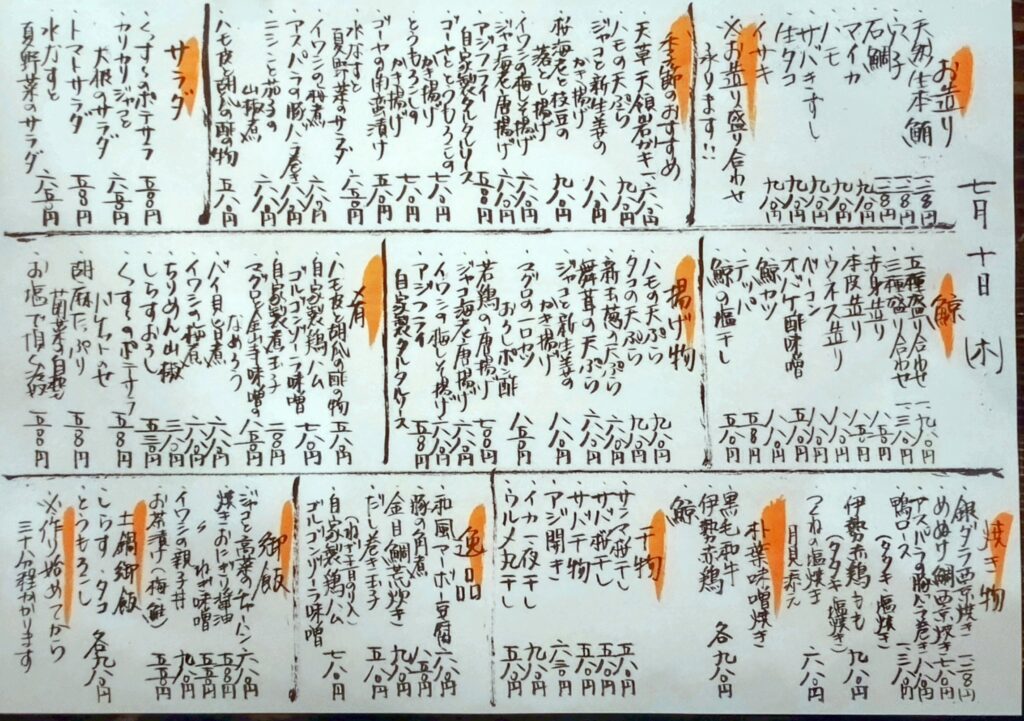 七月十日(木)
お造り
天然生本鮪 一二八〇円
石鯛
マイカ
ハモ
サバきずし
生タコ
イサキ
※お造り盛り合わせ
承ります!!
本日のおすすめ
天草天領岩ガキ 一六八〇円
ハモの天ぷら 九八〇円
ジャコと新生姜の
かき揚げ 八八〇円
桜海老と枝豆の
落とし揚げ 九八〇円
イワシの梅しそ揚げ 六八〇円
ジャコ海老唐揚げ 六八〇円
アジフライ
自家製タルタルソース 五八〇円
ゴーヤととうもろこしの
かき揚げ 七八〇円
とうもろこしの
かき揚げ 七八〇円
ゴーヤの南蛮漬け
水なすと
夏野菜のサラダ 六五〇円
イワシの梅煮 六八〇円
アスパラの豚バラ巻き 八八〇円
ニシンと茄子の
山椒煮 六八〇円
ハモ皮と胡瓜の酢の物 五八〇円
サラダ
くすくすのポテサラ 五八〇円
カリカリジャコと
大根のサラダ 六八〇円
トマトサラダ 五八〇円
水なすと
夏野菜のサラダ 六五〇円
鯨
五種盛り合わせ 一九八〇円
三種盛り合わせ 一三八〇円
赤身造り
本皮造り
ウネス造り
ベーコン
オバケ酢味噌
鯨カツ
テッパ
鯨の塩干し 五八〇円
揚げ物
ハモの天ぷら 九八〇円
タコの天ぷら 九八〇円
新玉葱の天ぷら
舞茸の天ぷら
ジャコと新生姜の
かき揚げ 八八〇円
マグロの一口カツ
おろしポン酢 八五〇円
若鶏の唐揚げ 七〇〇円
ジャコ海老唐揚げ 六八〇円
イワシの梅しそ揚げ 六八〇円
アジフライ
自家製タルタルソース 五八〇円
肴
ハモ皮と胡瓜の酢の物 五八〇円
自家製鶏ハム
ゴルゴンゾーラ味噌 七八〇円
自家製煮玉子 二〇〇円
マグロと金山寺味噌の
なめろう 八五〇円
バイ貝旨煮 六八〇円
イワシの梅煮 六八〇円
ちりめん山椒 三八〇円
しらすおろし 五三〇円
くすくすのポテサラ
バケットのせ 五八〇円
胡麻たっぷり 五八〇円
お塩で頂く
焼き物
銀ダラ西京焼き 一二八〇円
めぬけ鯛西京焼き 七八〇円
アスパラの豚バラ巻き 八八〇円
鴨ロース
(タタキ・塩焼き) 一三八〇円
伊勢赤鶏もも
(タタキ・塩焼き) 九八〇円
つくねの塩焼き
月見添え 六八〇円
朴葉味噌焼き
黒毛和牛
伊勢赤鶏
鯨
各九八〇円
干物
サンマ桜干し 五八〇円
サバ桜干し
サバ干物
アジ開き 六三〇円
イカ一夜干し 九八〇円
ウルメ丸干し 五八〇円
逸品
和風マーボー豆腐 六八〇円
豚の角煮 八五〇円
金目鯛荒炊き 九八〇円
だし巻き玉子
(ねぎ・じゃこ入り) 五八〇円
自家製鶏ハム
ゴルゴンゾーラ味噌 七八〇円
御飯
ジャコと高菜のチャーハン 六八〇円
焼きおにぎり醤油 五八〇円
〃 ねぎ味噌 五五〇円
イワシの親子丼 九八〇円
お茶漬け(梅・鮭) 五五〇円
土鍋御飯
しらす・タコ
とうもろこし
各九八〇円
※作り始めてから
三十分程かかります